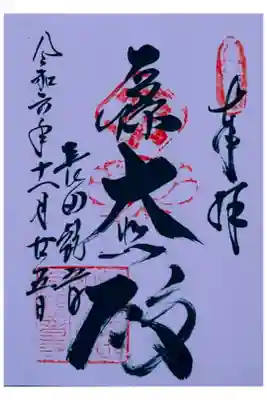 奉拝
厄除
大悲殿
長田観音
令和六年十一月廿五日